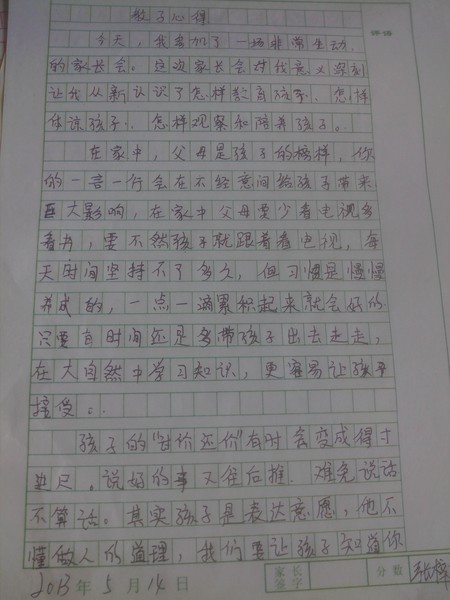 教子心得
评语
今天，我参加了一场非常生动
的家长会。这次家长会对我意义深刻
让我从新认识了怎样教育孩子、怎样
体谅孩子、怎样观察和陪养孩子。
在家中，父母是孩子的榜样，你
的一言一行会在不经意间给孩子带来
巨大影响，在家中父母要少看电视多
看书，要不然孩子就跟着看电视，每
天时间坚持不了多久，但习惯是慢慢
养成的，一点一滴累积起来就会好的
只要有时间还是多带孩子出去走走，
在大自然中学习知识，更容易让孩子
接受。
孩子的"讨价还价"有时会变成得寸
进尺，说好的事又往后推，难免说话
不算话。其实孩子是表达意愿，他不
懂做人的道理，我们要让孩子知道你
2013年5月14日
家长签字
分数